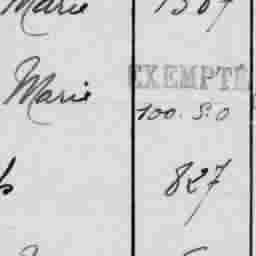 Marie 1307
Marie EXEMPTÉ
100. S. O
827